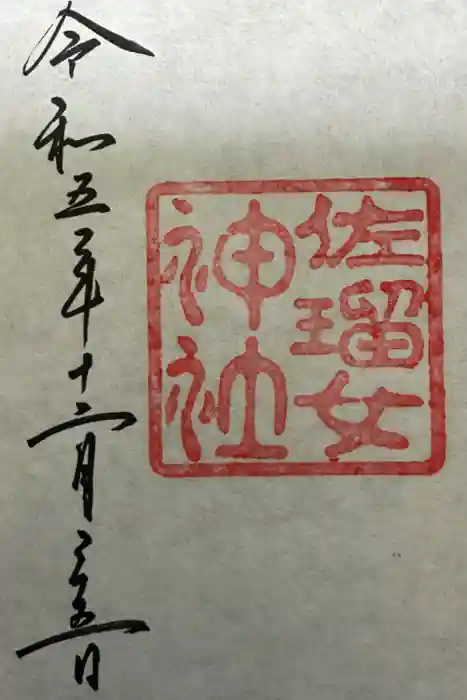 佐瑠女
神社
令和五年十二月二十五日